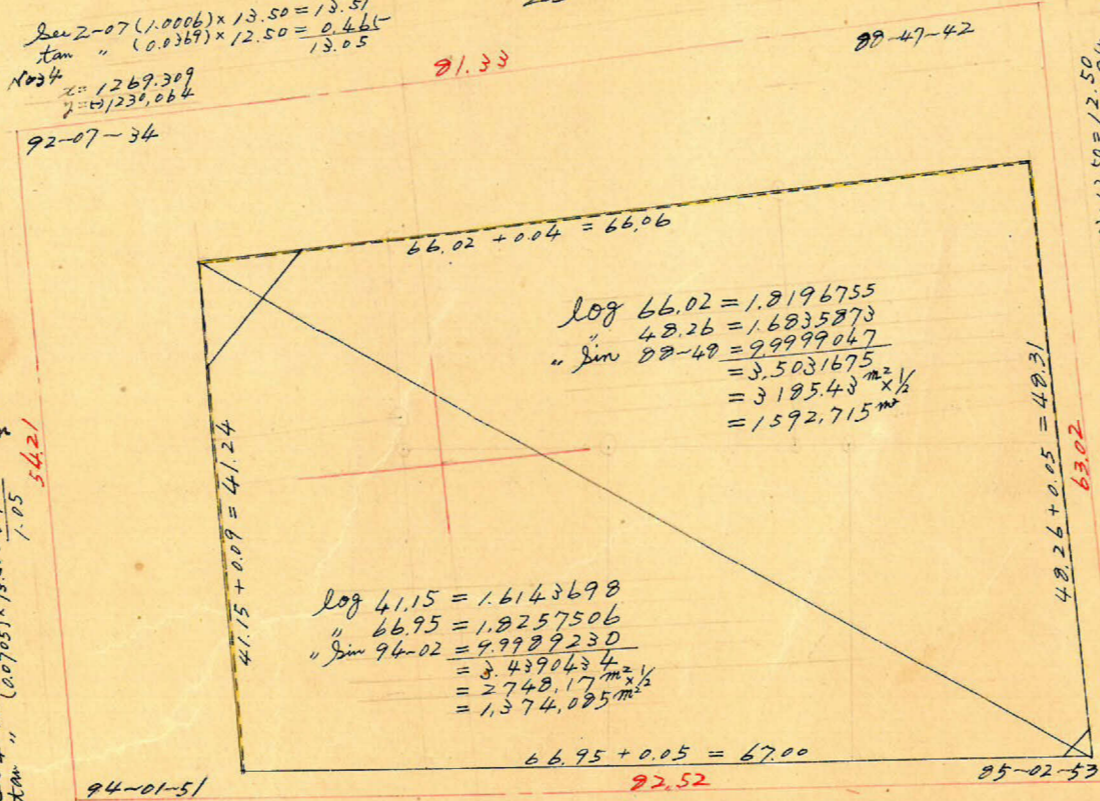 Sec 2-07 (1.0006) × 13.50 = 13.51
tan " (0.0369) × 12.50 = 0.465
13.05
No34
x = 1269.309
y = (-)1230.064
92-07-34
81.33
88-47-42
66.02 + 0.04 = 66.06
log 66.02 = 1.8196755
" 48.26 = 1.6835873
" Sin 88-48 = 9.9999047
= 3.5031675
= 3185.43 m² × 1/2
= 1592.715 m²
54.21
1.05
41.15 + 0.09 = 41.24
48.26 + 0.05 = 48.31
63.02
= 12.50
log 41.15 = 1.6143698
" 66.95 = 1.8257506
" Sin 94-02 = 9.9989230
= 3.4390434
= 2748.17 m² × 1/2
= 1,374.085 m²
tan " (0.0705) ×
66.95 + 0.05 = 67.00
94-01-51
82.52
85-02-53